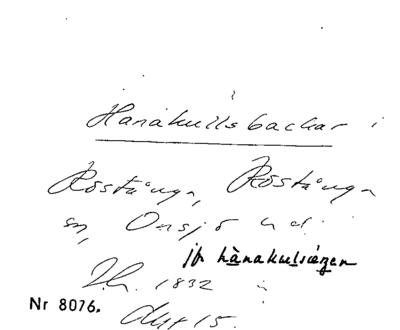 Hanakullsbackar i
Röstånga, Röstånga
sn, Onsjö hd.
jfr hànakulsǽgen
Lh. 1832
Nr 8076. Akt 15.